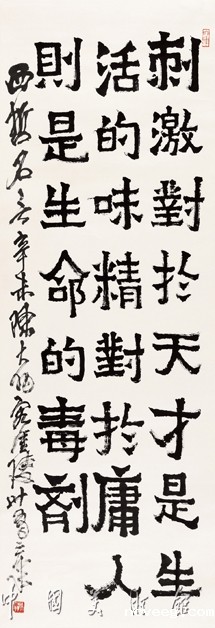 刺激對於天才是生
活的味精對於庸人
則是生命的毒劑
西哲名言辛未陳大羽
中國美術館